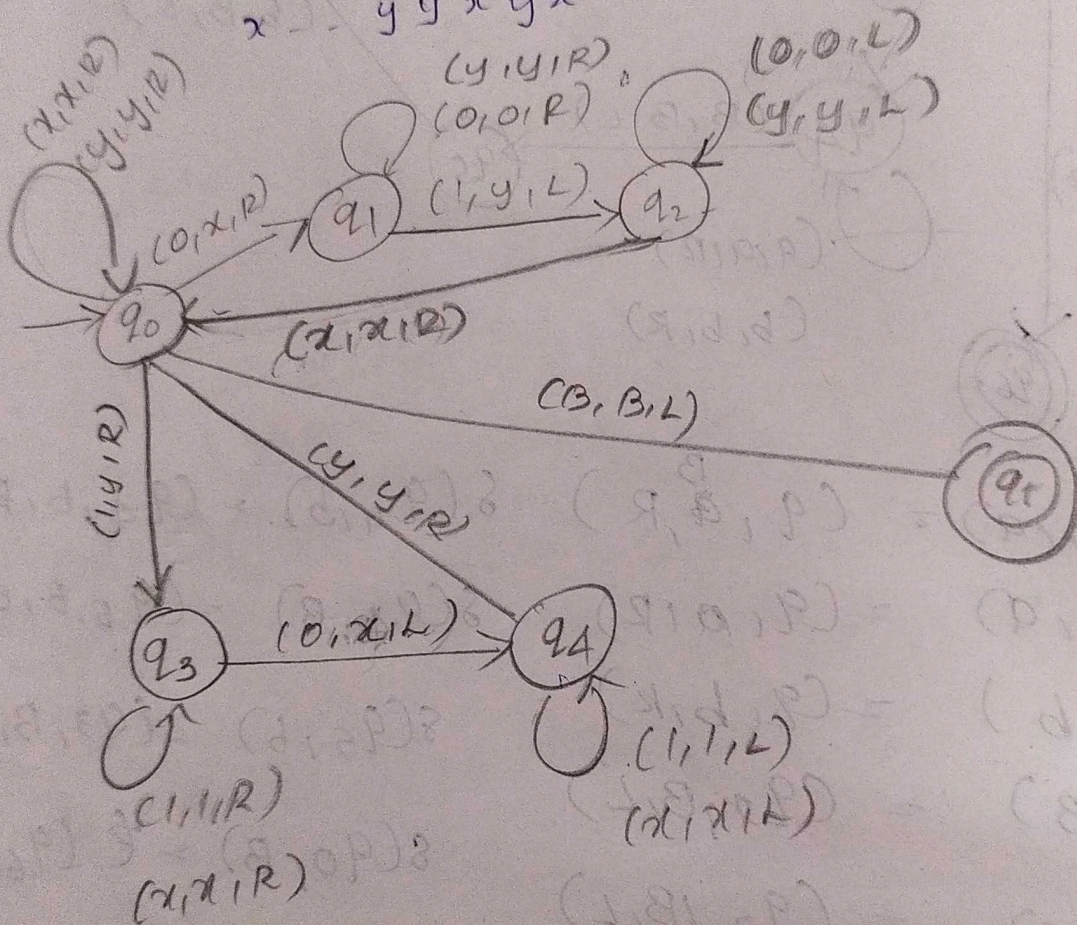 x -- y y x y x
(x,x,R)
(y,y,R)
(y,y,R)
(0,0,R)
(0,0,L)
(y,y,L)
(0,x,R)
q1
(1,y,L)
q2
q0
(x,x,R)
(B,B,L)
qf
(1,y,R)
(y,y,R)
q3
(0,x,L)
q4
(1,1,R)
(x,x,R)
(1,1,L)
(x,x,L)